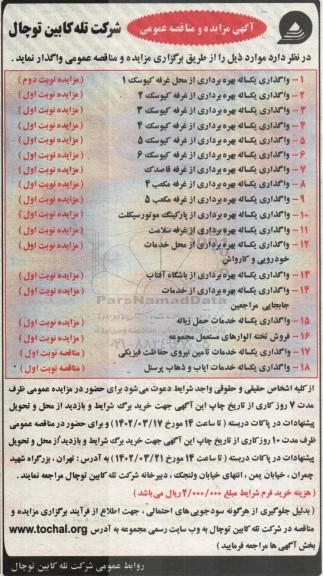 آگهی مزایده و مناقصه عمومی
شرکت تله کابین توچال
در نظر دارد موارد ذیل را از طریق برگزاری مزایده و مناقصه عمومی واگذار نماید.
۱- واگذاری یکساله بهره برداری از محل غرفه کیوسک ۱ (مزایده نوبت دوم)
۲- واگذاری یکساله بهره برداری از غرفه کیوسک ۲ (مزایده نوبت اول)
۳- واگذاری یکساله بهره برداری از غرفه کیوسک ۳ (مزایده نوبت اول)
۴- واگذاری یکساله بهره برداری از غرفه کیوسک ۴ (مزایده نوبت اول)
۵- واگذاری یکساله بهره برداری از غرفه کیوسک ۵ (مزایده نوبت اول)
۶- واگذاری یکساله بهره برداری از غرفه کیوسک ۶ (مزایده نوبت اول)
۷- واگذاری یکساله بهره برداری از غرفه قاصدک (مزایده نوبت اول)
۸- واگذاری یکساله بهره برداری از غرفه مکعب ۴ (مزایده نوبت اول)
۹- واگذاری یکساله بهره برداری از غرفه مکعب ۵ (مزایده نوبت اول)
۱۰- واگذاری یکساله بهره برداری از پارکینگ موتورسیکلت (مزایده نوبت اول)
۱۱- واگذاری یکساله بهره برداری از غرفه سلامت (مزایده نوبت اول)
۱۲- واگذاری یکساله بهره برداری از محل خدمات (مزایده نوبت اول)
خودرویی و کارواش
۱۳- واگذاری یکساله بهره برداری از باشگاه آفتاب (مزایده نوبت اول)
۱۴- واگذاری یکساله بهره برداری از خدمات (مزایده نوبت اول)
جابجایی مراجعین
۱۵- واگذاری یکساله خدمات حمل زباله (مزایده نوبت اول)
۱۶- فروش تخته الوارهای مستعمل مجموعه (مزایده نوبت اول)
۱۷- واگذاری یکساله خدمات تامین نیروی حفاظت فیزیکی (مناقصه نوبت اول)
۱۸- واگذاری یکساله خدمات ایاب و ذهاب پرسنل (مناقصه نوبت اول)
ParsNamadData
از کلیه اشخاص حقیقی و حقوقی واجد شرایط دعوت می‌شود برای حضور در مزایده عمومی ظرف
مدت ۷ روز کاری از تاریخ چاپ این آگهی جهت خرید برگ شرایط و بازدید از محل و تحویل
پیشنهادات در پاکات دربسته (تا ساعت ۱۴ مورخ ۱۴۰۲/۰۳/۱۷) و برای حضور در مناقصه عمومی
ظرف مدت ۱۰ روز کاری از تاریخ چاپ این آگهی جهت خرید برگ شرایط و بازدید از محل و تحویل
پیشنهادات در پاکات دربسته (تا ساعت ۱۴ مورخ ۱۴۰۲/۰۳/۲۱) به آدرس: تهران، بزرگراه شهید
چمران، خیابان یمن، انتهای خیابان ولنجک، دبیرخانه شرکت تله کابین توچال مراجعه نمایند.
(هزینه خرید فرم شرایط مبلغ ۲/۰۰۰/۰۰۰ ریال می‌باشد)
(بدلیل جلوگیری از هرگونه سودجویی‌های احتمالی، جهت اطلاع از فرآیند برگزاری مزایده و
مناقصه در شرکت تله کابین توچال به وب سایت رسمی مجموعه به آدرس www.tochal.org
بخش آگهی ها مراجعه فرمایید)
روابط عمومی شرکت تله کابین توچال